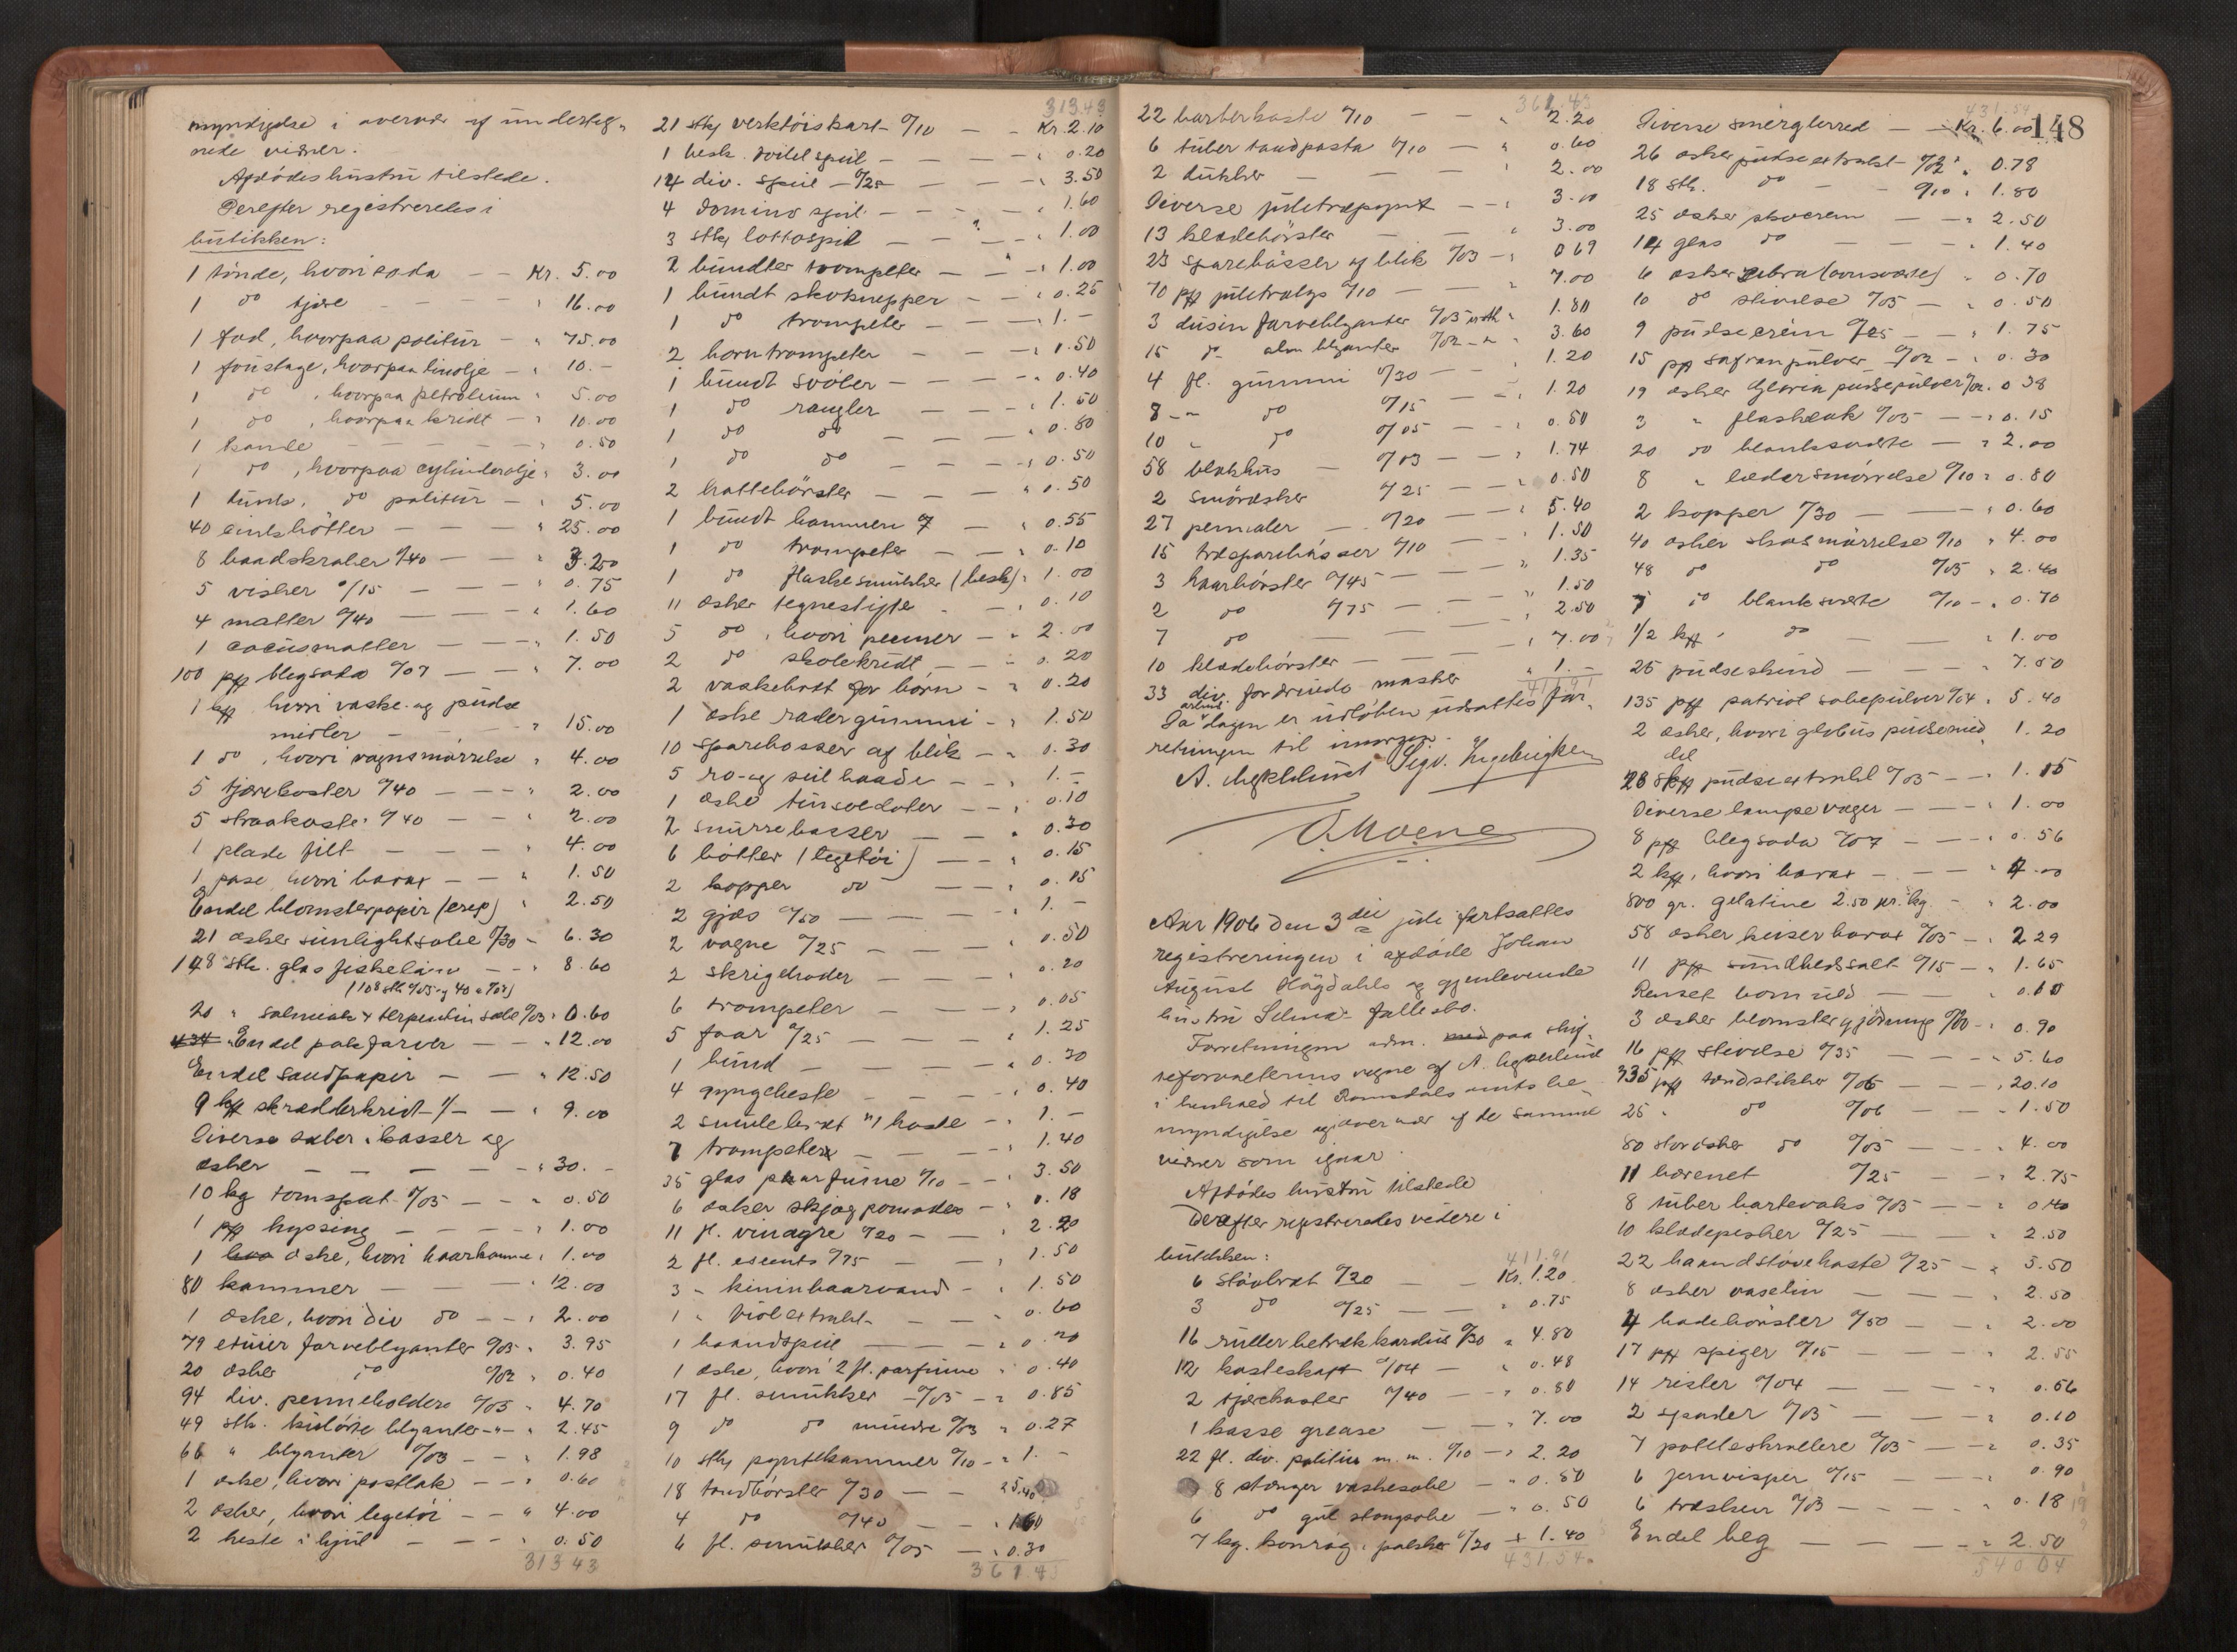 myndigelse i overvær af underteg-
nede vidner.
Afdødes hustru tilstede.
Derefter registreredes i
butikken:
1 tønde, hvori soda — — Kr. 5.00
1 do tjære — — — " 16.00
1 fad, hvorpaa politur — " 75.00
1 foustage, hvorpaa linolje — " 10.-
1 do , hvorpaa petroleum " 5.00
1 do , hvorpaa kridt — " 10.00
1 kande — — — — " 0.50
1 do , hvorpaa cylinderolje " 3.00
1 dunk, do politur — " 5.00
40 bøtter — — — " 25.00
8 baandskraber a/40 — — " 3.20
5 visker a/15 — — — " 0.75
4 matter a/40 — — — " 1.60
1 cocusmatter — — — " 1.50
100 pk blegsoda a/07 — — " 7.00
1 kh hvori vaske- og pudse
midler — — — " 15.00
1 do , hvori vognsmørrelse " 4.00
5 tjærekoster a/40 — — — " 2.00
5 straakoste a/40 — — " 2.00
1 plade filt — — — — " 4.00
1 pose, hvori borax — — " 1.50
Endel blomsterpapir (crep) " 2.50
21 æsker sunlightsæbe a/30 - 6.30
148 stk. glas fiskelim — — " 8.60
(108 stk a/05 og 40 a/08)
20 " salmiak & terpentin sæbe a/03 " 0.60
Endel pakfarver — — " 12.00
Endel sandpapir — — " 12.50
9 kh skrædderkridt 1/- — " 9.00
Diverse sæber i kasser og
æsker — — — — " 30.-
10 kg tomspat a/05 — — " 0.50
1 pk hyssing — — — " 1.00
1 æske, hvori haarkamme " 1.00
80 kammer — — — " 12.00
1 æske, hvori div do — — " 2.00
79 etuier farveblyanter a/05 " 3.95
20 æsker do a/02 " 0.40
94 div. penneholdere a/05 " 4.70
49 stk. kulørte blyanter -"- " 2.45
66 " blyanter a/03 — — " 1.98
1 æske, hvori postlak — — " 0.60
2 æsker, hvori legetøi — — " 4.00
2 heste i hjul — — — " 0.50
313 43
313.43
21 stk verktøiskart- a/10 — — Kr. 2.10
1 besk. spil — — — — " 0.20
14 div. spil — a/25 — — — " 3.50
4 domino spil — — — " 1.60
3 stk lottospil — — — " 1.00
2 bundter trompeter — — — " 1.00
1 bundt skoknepper — — " 0.25
1 do trompeter — — — " 1.-
2 horntrompeter — — — " 1.50
1 bundt svøber — — — " 0.40
1 do rangler — — — " 1.50
1 do do — — — " 0.80
1 do do — — — " 0.50
2 hattebørster — — — " 0.50
1 bundt hammere — " 0.55
1 do trompeter — — " 0.10
1 do flaskesmukker (besk) " 1.00
11 æsker tegnestifte — " 0.10
5 do , hvori penner — " 2.00
2 do skolekridt — — " 0.20
2 vaskebræt for børn — " 0.20
1 æske radergummi — " 1.50
10 sparebøsser af blik — " 0.30
5 ro- og seilbaade — — " 1.-
1 æske tinsoldater — — " 0.10
2 snurrebasser — — " 0.30
6 bøtter (legetøi) — — " 0.15
2 kopper do — — " 0.15
2 gjæs a/50 — — — — " 1.-
2 vogne a/25 — — — " 0.50
2 skrigedrader — — — " 0.20
6 trompeter — — — " 0.05
5 faar a/25 — — — " 1.25
1 hund — — — — " 0.30
4 gyngeheste — — — " 0.40
2 1 hæste — " 1.-
7 trompeter — — — " 1.40
35 glas parfume a/10 — — " 3.50
6 æsker skjægpomade — " 0.18
11 fl. vinagre a/20 — — " 2.20
2 fl. a/75 — — " 1.50
3 " kininhaarvand — " 1.50
1 " violextrakt — — " 0.60
1 haandspeil — — — " 0.20
1 æske, hvori 2 fl. parfume " 0.40
17 fl. smukker — a/05 — " 0.85
9 do do mindre a/03 " 0.27
10 stk pyntekammer a/10 — " 1.-
18 tandbørster a/30 — — " 5.40
4 do a/40 — — " 1.60
6 fl. smukker a/05 — " 0.30
361.43
361.43
22 barberkoste a/10 — — " 2.20
6 tuber tandpasta a/10 — " 0.60
2 dukker — — — — " 2.00
Diverse juletrepynt — — " 3.00
13 klædebørster — — — " 3.00
23 sparebøsser af blik a/03 — " 0.69
70 pk juletrelys a/10 — — " 7.00
3 dusin farveblyanter a/05 " 1.80
15 do alm blyanter a/02 — " 3.60
4 fl. gummi a/30 — — " 1.20
8 -"- do a/15 — — " 1.20
10 " do a/05 — — " 0.50
58 blækhus — a/03 — — " 1.74
2 smøræsker a/25 — — " 0.50
27 pennaler — a/20 — — " 5.40
15 træsparebøsser a/10 — — " 1.50
3 haarbørster a/45 — — — " 1.35
2 do a/75 — — — " 1.50
7 do — — — " 2.50
10 klædebørster — — — " 7.00
33 div. fordrevede masker " 1.-
411.91
Da arbeidsdagen er udløben udsattes for-
retningen til imorgen.
A. Sigv. Ingebrigtsen
O. Moene
Aar 1906 den 3die juli fortsattes
registreringen i afdøde Johan
August Högdahls og gjenlevende
hustru Selma's fællesbo.
Forretningen adm. paa skif-
teforvalterens vegne af A.
i henhold til Romsdals amts be
myndigelse og i overvær af de samme
vidner som igaar.
Afdødes hustru tilstede
Derefter registreredes videre i
butikken:
411.91
6 støvbræt a/20 — — Kr. 1.20
3 do a/25 — — " 0.75
16 rullerbetrækkardus a/30 " 4.80
12 kosteskaft a/04 — " 0.48
2 tjærekoster a/40 — — " 0.80
1 kasse grease — — " 7.00
22 fl. div. politur m. m. a/10 — " 2.20
8 stænger vaskesæbe — " 0.80
6 do gul stangsæbe — " 0.50
7 kg. kønrøg i pakker a/20 " 1.40
431.54
431.54
148
Diverse smergllerred — — Kr. 6.00
26 æsker pudseextrakt a/03 " 0.78
18 stk. do — a/10 " 1.80
25 æsker skocrem — — " 2.50
14 glas do — — — " 1.40
6 æsker zebra (ovnsværte) " 0.70
10 do stivelse a/05 — " 0.50
9 pudsecrém a/25 — — " 1.75
15 pk safranpulver a/02 — " 0.30
19 æsker Gloria pudsepulver a/02 " 0.38
3 " flaskelak a/05 — — " 0.15
20 do blanksværte — " 2.00
8 " lædersmørrelse a/10 " 0.80
2 kopper a/30 — — — " 0.60
40 æsker skosmørrelse a/10 " 4.00
48 do do a/05 " 2.40
7 do blanksværte a/10 — " 0.70
1/2 kh do — — " 1.00
25 pudseskind — — — " 7.50
135 pk patriot sæbepulver a/04 " 5.40
2 æsker, hvori globus pudsemid
del " 1.20
23 pudseextrakt a/05 — " 1.15
Diverse lampevæger — — " 1.00
8 pk blegsoda a/07 — — " 0.56
2 kh, hvori borax — — " 4.00
800 gr. gelatine 2.50 pr. kg. — " 2.00
58 æsker keiserborax a/05 — " 2 29
11 pk sundhedssalt a/15 — " 1.65
Renset bomuld — — " 0.10
3 æsker blomstergjødning a/30 — " 0.90
16 pk stivelse a/35 — — — " 5.60
335 pk tændstikker a/06 — — " 20.10
25 " do a/06 — — — " 1.50
80 storæsker do a/05 — — " 4.00
11 bærenet a/25 — — " 2.75
8 tuber bartevoks a/05 — — " 0.40
10 klædepisker a/25 — — " 2.50
22 haandstøvekoste a/25 — " 5.50
8 æsker vaselin — — — " 2.50
4 badebørster a/50 — — " 2.00
17 pk spiger a/15 — — — " 2.55
14 rister a/04 — — — — " 0.56
2 spader a/05 — — — " 0.10
7 potteskrallere a/05 — — " 0.35
6 jernvisper a/15 — — — " 0.90
6 træskeer a/03 — — — " 0.18
Endel beg — — — — " 2.50
540 04